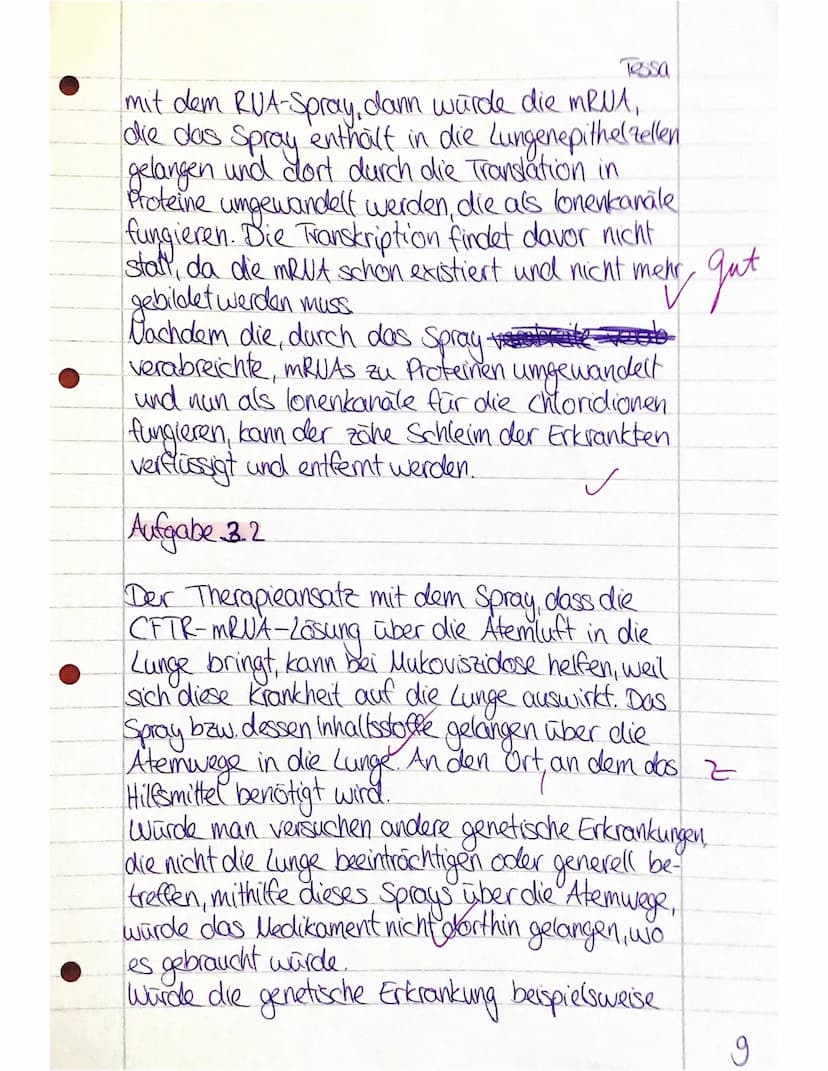 Tessa
mit dem RNA-Spray, dann würde die mRNA,
die das Spray enthält in die Lungenepithelzellen
gelangen und dort durch die Translation in
Proteine umgewandelt werden, die als Ionenkanäle
fungieren. Die Transkription findet davor nicht
statt, da die mRNA schon existiert und nicht mehr
gut
gebildet werden muss
Nachdem die, durch das Spray
verabreichte, mRNAs zu Proteinen umgewandelt
und nun als Ionenkanäle für die Chloridionen
fungieren, kann der zähe Schleim der Erkrankten
verflüssigt und entfernt werden.
Aufgabe 3.2
Der Therapieansatz mit dem Spray, dass die
CFTR-mRNA-Lösung über die Atemluft in die
Lunge bringt, kann bei Mukoviszidose helfen, weil
sich diese Krankheit auf die Lunge auswirkt. Das
Spray bzw. dessen Inhaltsstoffe gelangen über die
Atemwege in die Lunge. An den Ort, an dem das
Z
Hilfsmittel benötigt wird.
Würde man versuchen andere genetische Erkrankungen,
die nicht die Lunge beeinträchtigen oder generell be-
treffen, mithilfe dieses Sprays über die Atemwege,
würde das Medikament nicht dorthin gelangen, wo
es gebraucht würde.
Würde die genetische Erkrankung beispielsweise
9